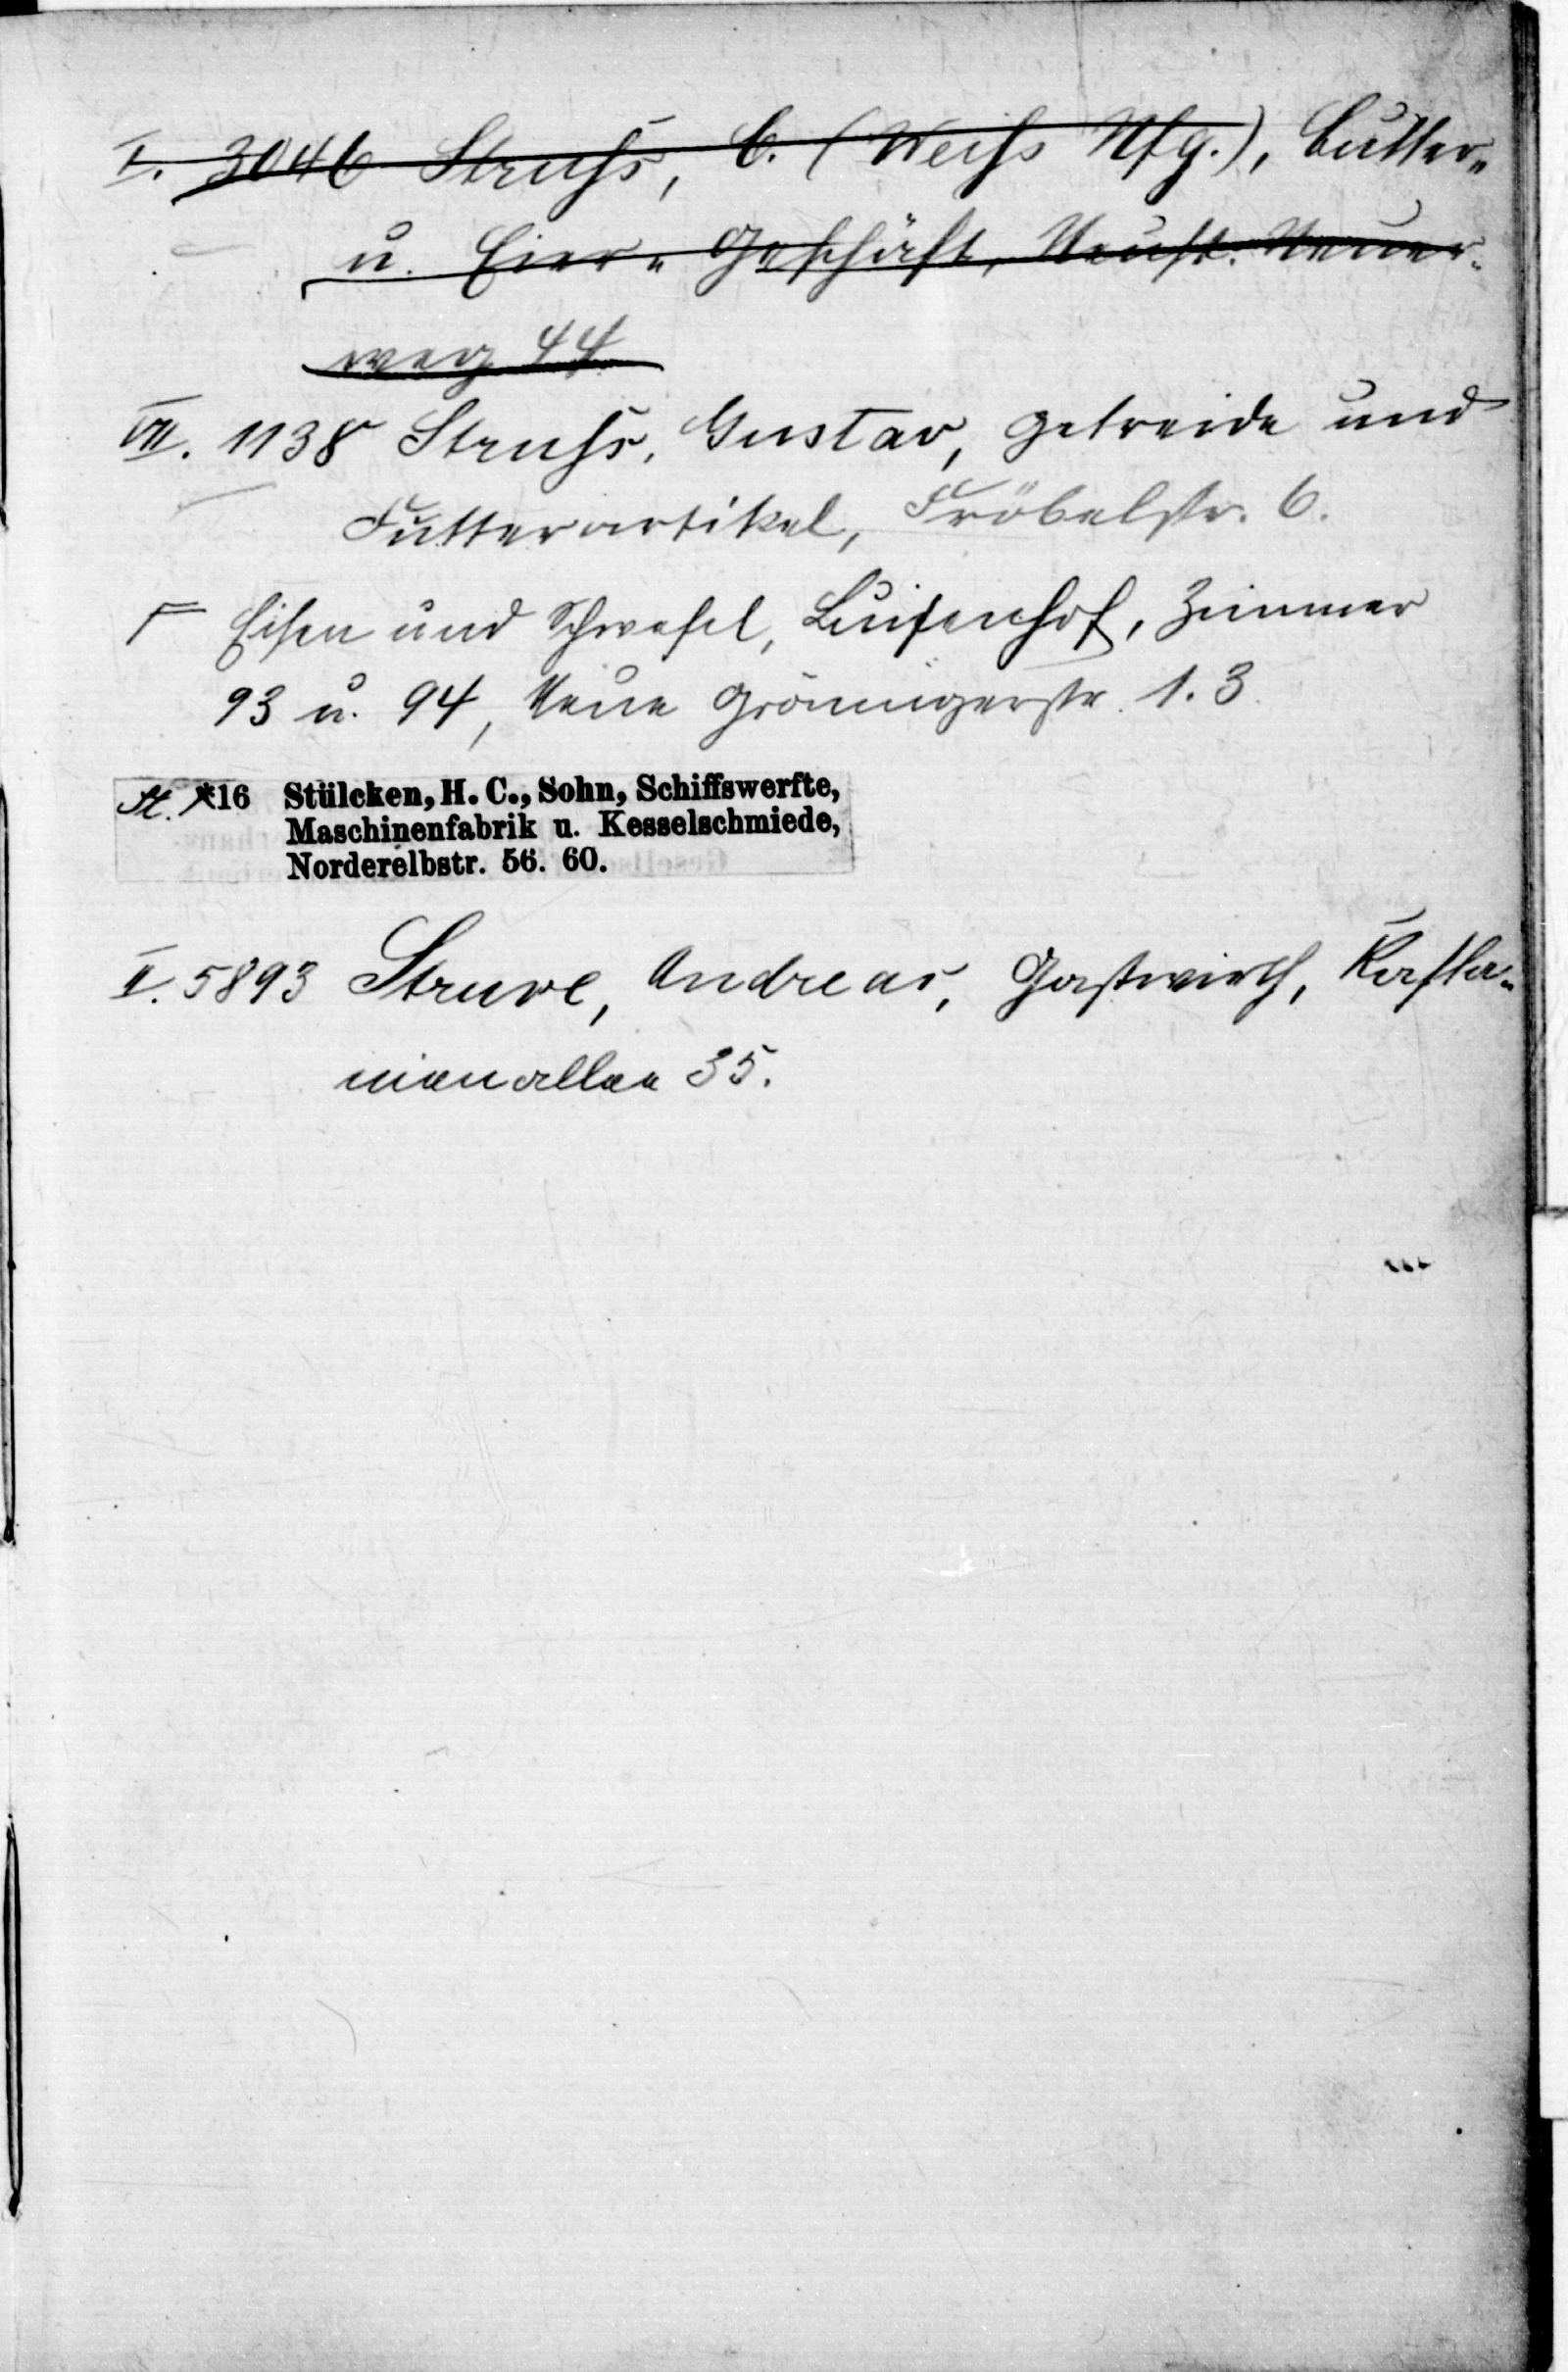 I. 3046 Struſs, C. (Weiſs Nfg.), Butter-
u. Eier-Geschäft, Neust. Neuer-
weg 44
VII. 1138 Struſs, Gustav, Getreide und
Futterartikel, Fröbelstr. 6.
Eisen und Schwefel, Luisenhof, Zimmer
93 u. 94, Neue Gröningerstr. 1. 3
St. *16 Stülcken, H. C., Sohn, Schiffswerfte,
Maschinenfabrik u. Kesselschmiede,
Norderelbstr. 56. 60.
II. 5893 Struve, Andreas, Gastwirth, Kasta-
nienallee 35.